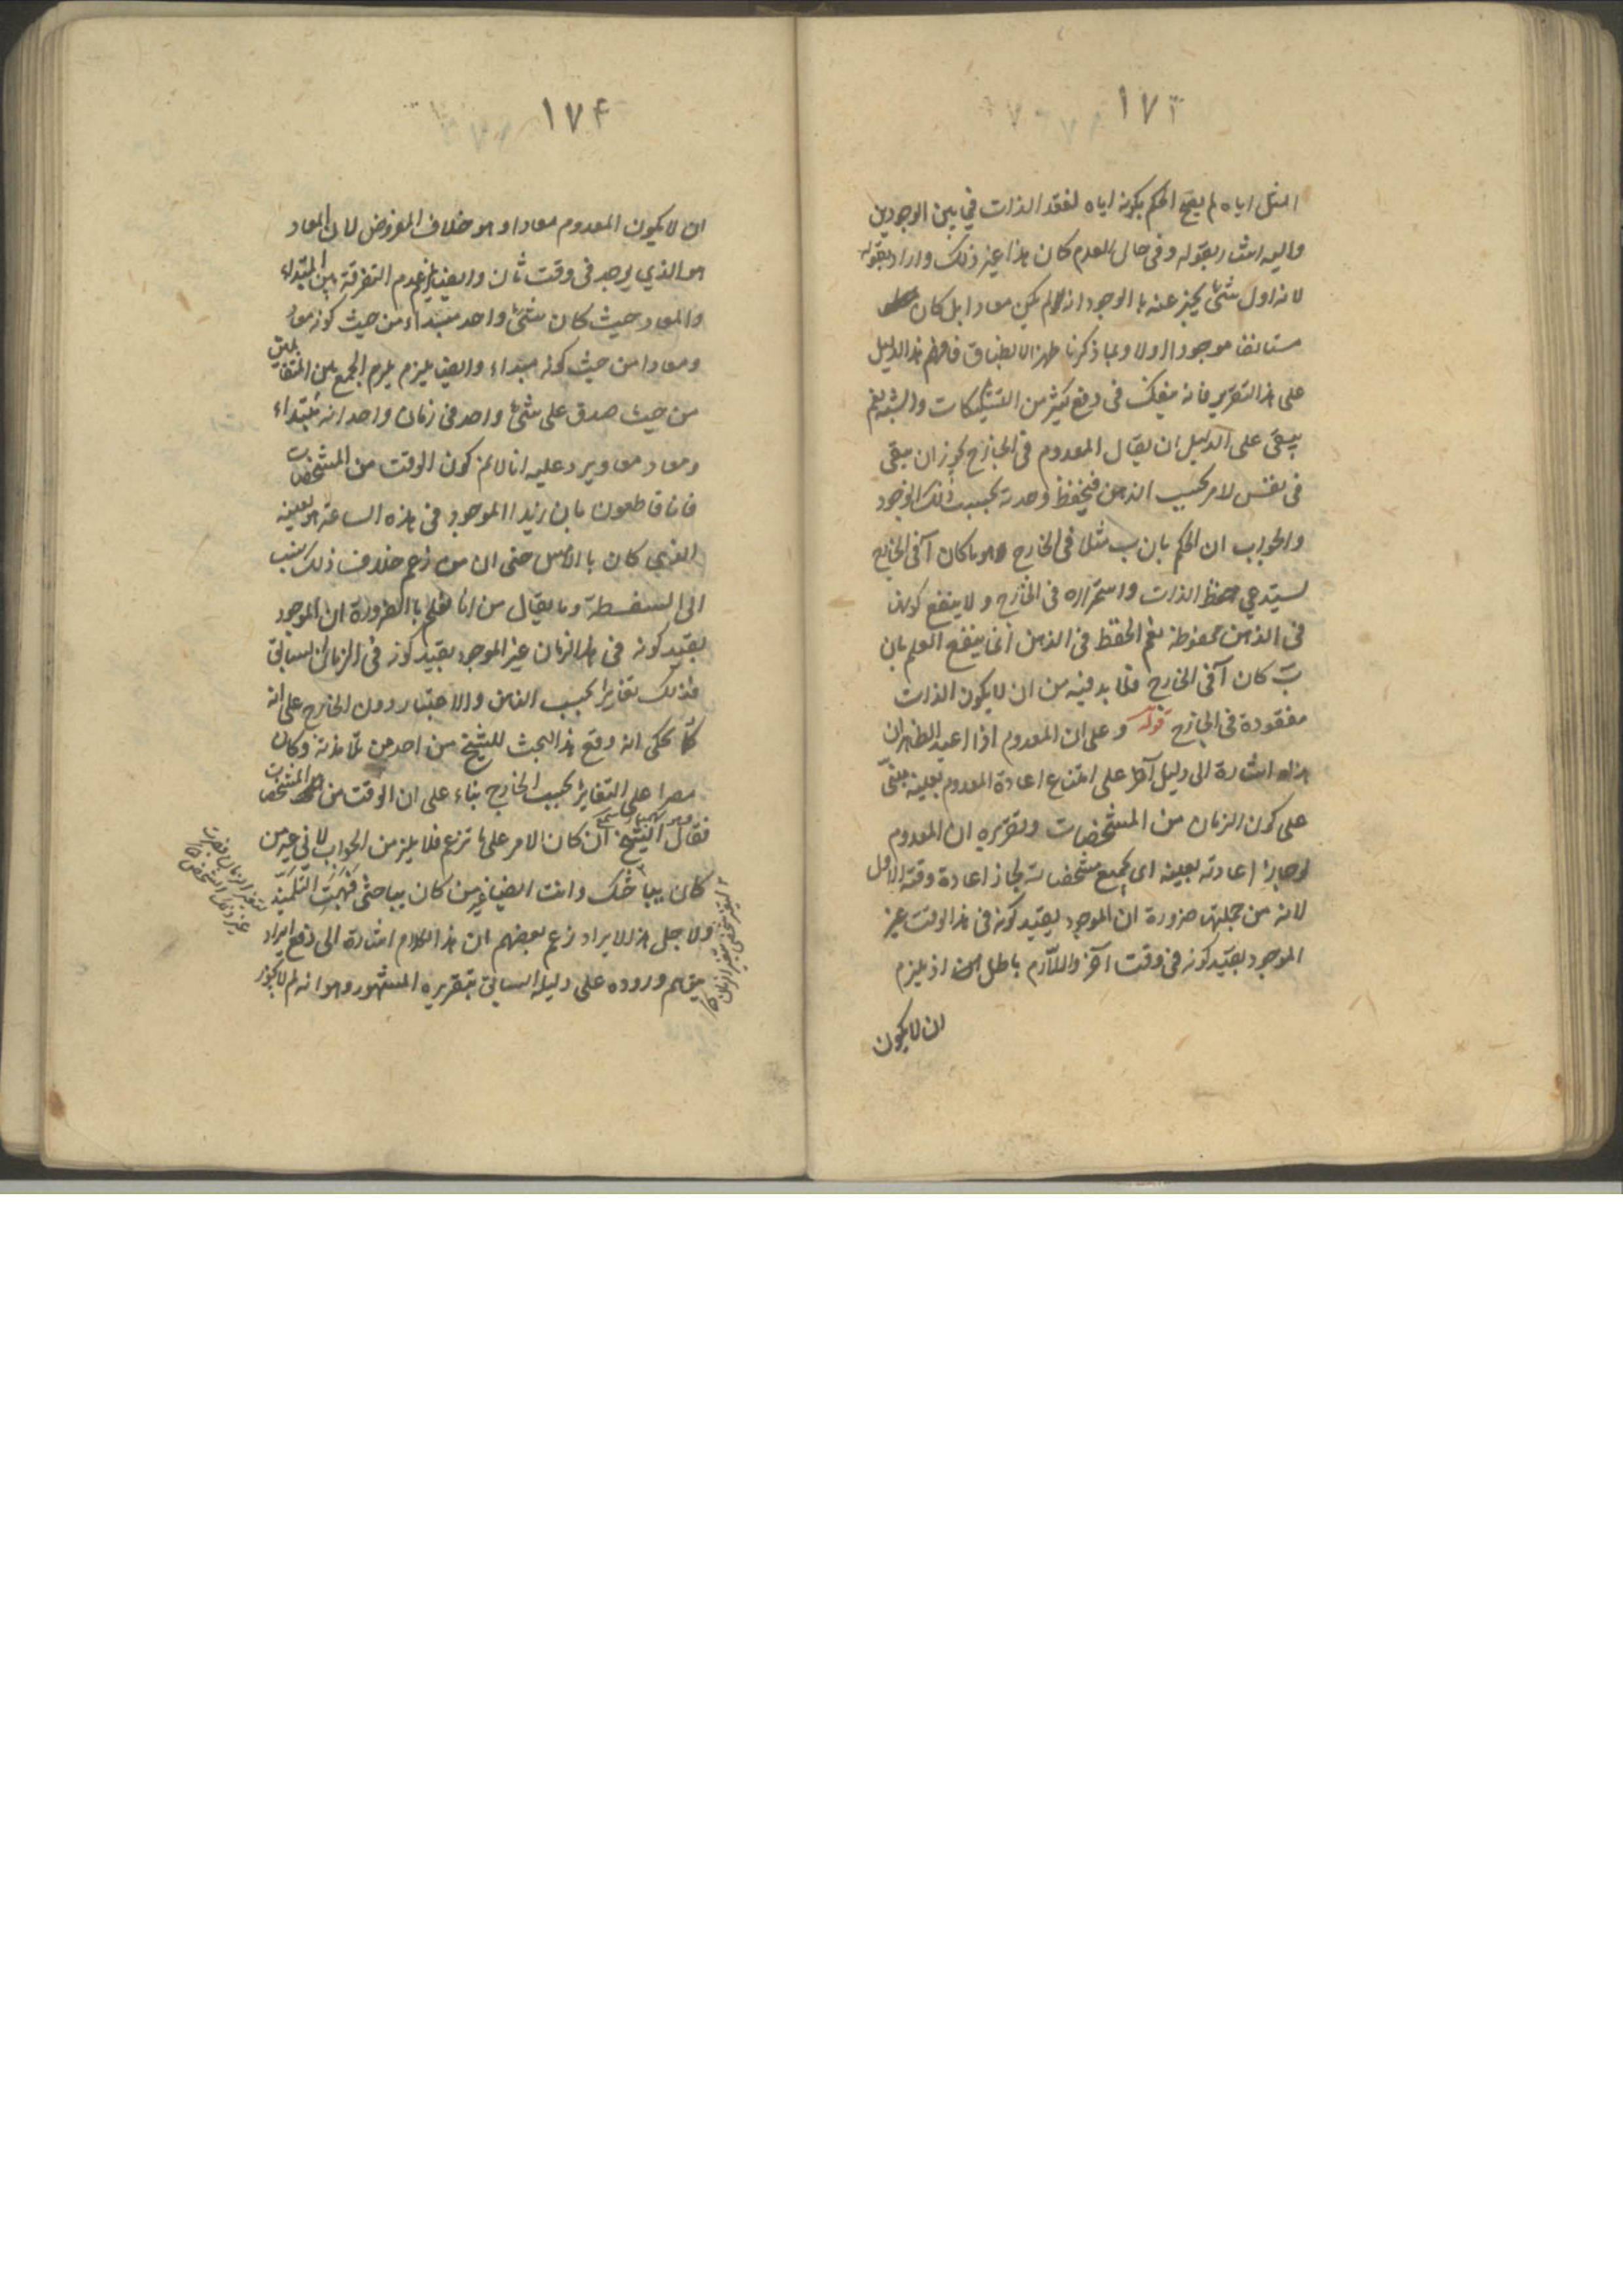 ١٧٣
المثل اياه لم يصح الحكم بكونه اياه لفقد الذات في بين الوجودين
واليه اشار بقوله وفى حال العدم كان هذا غير ذلك واراد بقوله
لانه اول شئ يخبر عنه با الوجود انه لم يكن معادا بل كان
مستانفا موجودا اولا وبما ذكرنا ظهر الانطباق فافهم هذا الدليل
على هذا التقرير فانه ينفعك فى دفع كثير من التشكيكات والشبه نعم
يبقى على الدليل ان يقال المعدوم فى الخارج يجوز ان يبقى
فى نفس لامر بحسب الذهن فيحفظ وحدته بحسب ذلك الوجود
والجواب ان الحكم بان ب مثلا فى الخارج هو ما كان آ فى الخارج
يستدعي حفظ الذات واستمراره فى الخارج و لا ينفع كونها
فى الذهن محفوظة نعم الحفظ فى الذهن انما ينفع العلم بان
ب كان آ فى الخارج فلا بد فيه من ان لا يكون الذات
مفقودة فى الخارج قوله و على ان المعدوم اذا اعيد الظاهر ان
هذا اشارة الى دليل آخر على امتناع اعادة المعدوم بعينه مبنى
على كون الزمان من المشخصات وتقريره ان المعدوم
لو جاز اعادته بعينه اى بجميع مشخصاته لجاز اعادة وقته الاول
لانه من جملتها ضرورة ان الموجود بقيد كونه فى هذا الوقت غير
الموجود بقيد كونه فى وقت آخر واللازم باطل اذ يلزم
ان لا يكون
١٧۴
ان لا يكون المعدوم معادا وهو خلاف المفروض لان المعاد
هو الذي يوجد فى وقت ثان وايضا يلزم عدم التفرقة بين المبتداء
والمعاد حيث كان شئ واحد مبتداء من حيث كونه معاد
ومعادا من حيث كونه مبتداء وايضا يلزم الجمع بين المتقابلين
من حيث صدق على شئ واحد فى زمان واحد انه مبتداء
ومعاد معا ويرد عليه انا لانم كون الوقت من المشخصات
فانا قاطعون بان زيدا الموجود فى هذه الساعة هو بعينه
الذي كان بالامس حتى ان من زعم خلاف ذلك نسب
الى السفسطة وما يقال من انا نعلم بالضرورة ان الموجود
بقيد كونه فى هذا الزمان غير الموجود بقيد كونه فى الزمان السابق
فذلك تغاير بحسب الذهن والاعتبار دون الخارج على انه
يحكى انه وقع هذا البحث للشيخ من احد من تلامذته وكان
مصرا على التغاير بحسب الخارج بناء على ان الوقت من المشخصات
فقال الشيخ ان كان الامر على ما تزعم فلا يلزمن الجواب لانى غير من
كان يباحثك وانت ايضا غير من كان يباحثى فبهت التلميذ
ولاجل هذا الايراد زعم بعضهم ان هذا الكلام اشارة الى دفع ايراد
يتوهم وروده على دليله السابق بتقريره المشهور وهو انه لم لا يجوز